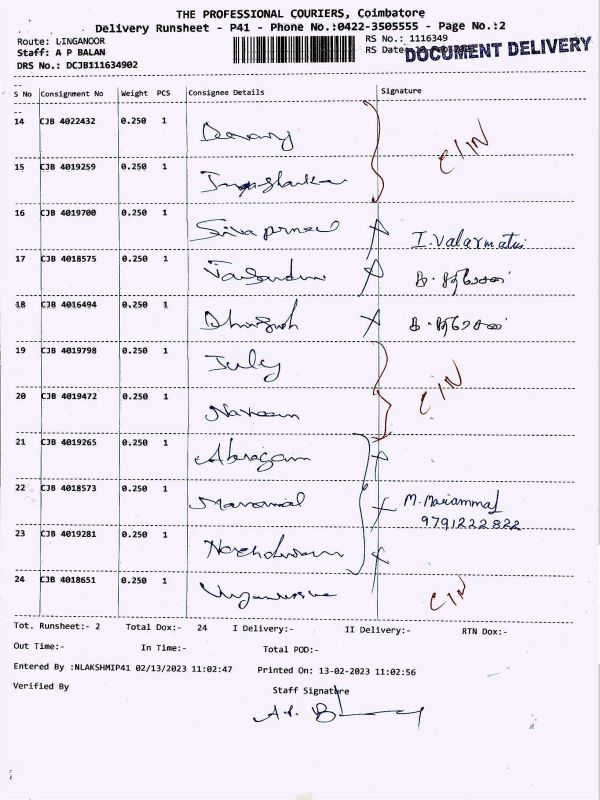 THE PROFESSIONAL COURIERS, Coimbatore
Delivery Runsheet - P41 - Phone No.:0422-3505555 - Page No.:2
Route: LINGANOOR
RS No.: 1116349
Staff: A P BALAN
RS Date:
DOCUMENT DELIVERY
DRS No.: DCJB111634902
S No Consignment No Weight PCS Consignee Details Signature
14 CJB 4022432 0.250 1
C/IN
15 CJB 4019259 0.250 1
16 CJB 4019700 0.250 1
I. Valarmatui
17 CJB 4018575 0.250 1
18 CJB 4016494 0.250 1
19 CJB 4019798 0.250 1 July
C/IN
20 CJB 4019472 0.250 1 Naveen
21 CJB 4019265 0.250 1 Abragam
22 CJB 4018573 0.250 1
M. Mariammal
9791222822
23 CJB 4019281 0.250 1
24 CJB 4018651 0.250 1
C/IN
Tot. Runsheet:- 2 Total Dox:- 24 I Delivery:- II Delivery:- RTN Dox:-
Out Time:- In Time:- Total POD:-
Entered By :NLAKSHMIP41 02/13/2023 11:02:47 Printed On: 13-02-2023 11:02:56
Verified By Staff Signature